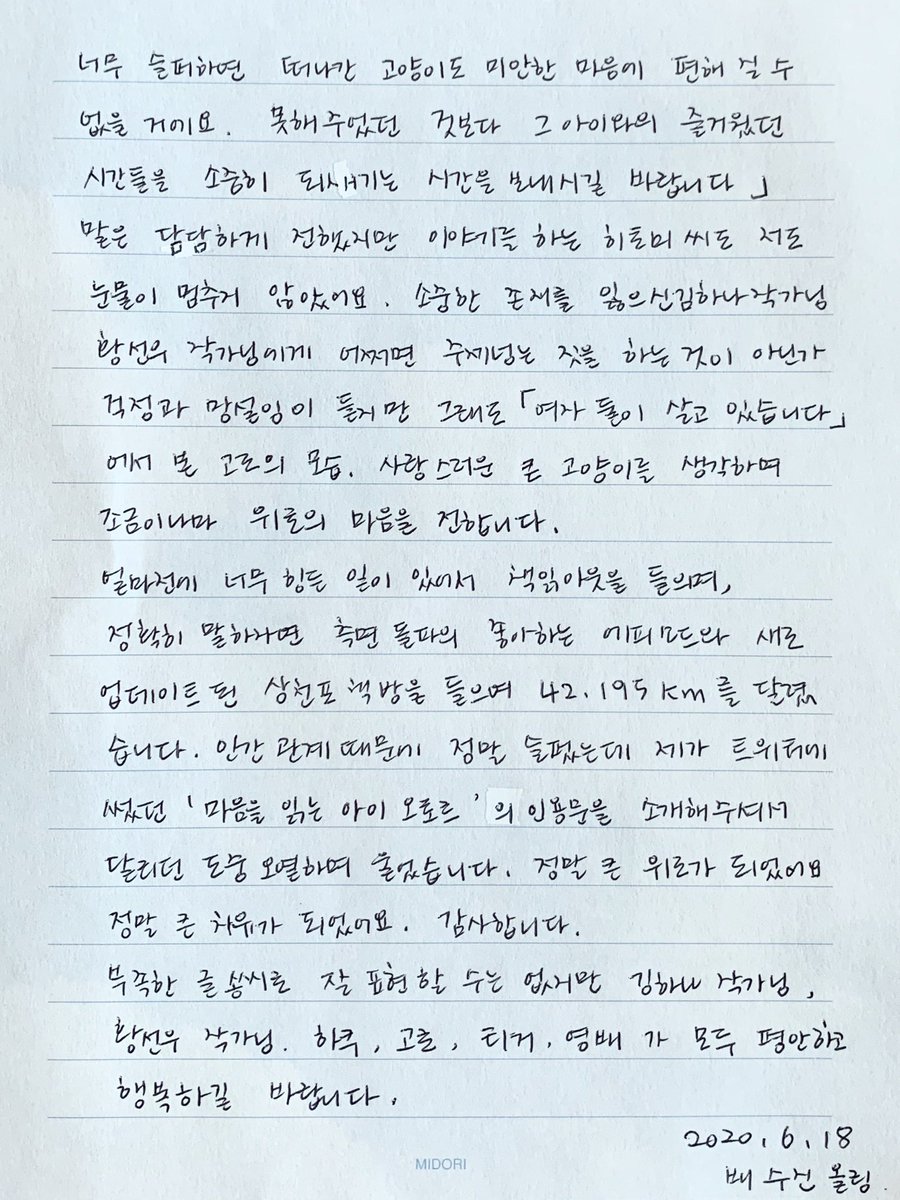 너무 슬퍼하면 떠나간 고양이도 미안한 마음에 편해 질 수
없을 거에요. 못해주었던 것보다 그 아이와의 즐거웠던
시간들을 소중히 되새기는 시간을 보내시길 바랍니다」
말은 담담하게 전했지만 이야기를 하는 히토미 씨도 저도
눈물이 멈추지 않았어요. 소중한 존재를 잃으신 김하나 작가님
황선우 작가님에게 어쩌면 주제넘는 짓을 하는 것이 아닌가
걱정과 망설임이 들지만 그래도 「여자 둘이 살고 있습니다」
에서 본 고로의 모습. 사랑스러운 큰 고양이를 생각하며
조금이나마 위로의 마음을 전합니다.
얼마전에 너무 힘든 일이 있어서 책읽아웃을 들으며,
정확히 말하자면 측면 돌파의 좋아하는 에피소드와 새로
업데이트 된 삼천포 책방을 들으며 42.195 Km 를 달렸
습니다. 인간 관계 때문에 정말 슬펐는데 제가 트위터에
썼던 '마음을 읽는 아이 오로르'의 인용문을 소개해주셔서
달리던 도중 오열하며 울었습니다. 정말 큰 위로가 되었어요
정말 큰 치유가 되었어요. 감사합니다.
부족한 글 솜씨로 잘 표현할 수는 없지만 김하나 작가님,
황선우 작가님. 하쿠, 고로, 티거, 영배 가 모두 평안하고
행복하길 바랍니다.
2020.6.18
배 수진 올림.
MIDORI